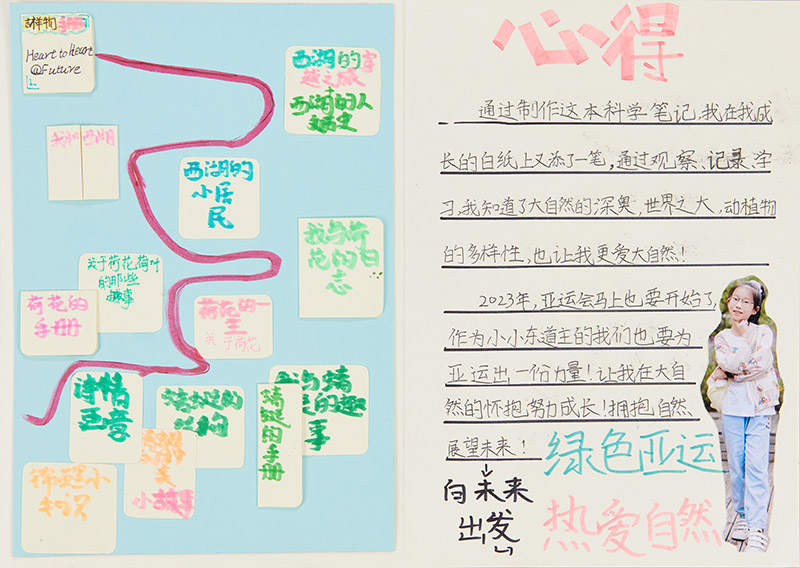 吉祥物手册
Heart to Heart
@Future
西湖的穿
越之旅
西湖的人
文历史
我和西湖
西湖的
小居
民
我与荷
花的日
志
关于荷花荷叶
的那些
趣事
荷花的
手册
荷花的一
生
关于荷花
诗情
画意
蜻蜓的
结构
蜻蜓的手册
蜓的趣
事
小故事
心得
通过制作这本科学笔记,我在我成
长的白纸上又添了一笔,通过观察、记录、学
习,我知道了大自然的深奥,世界之大,动植物
的多样性,也让我更爱大自然!
2023年,亚运会马上也要开始了,
作为小小东道主的我们也要为
亚运出一份力量!让我在大自
然的怀抱努力成长!拥抱自然、
展望未来!
绿色亚运
向未来
出发
热爱自然